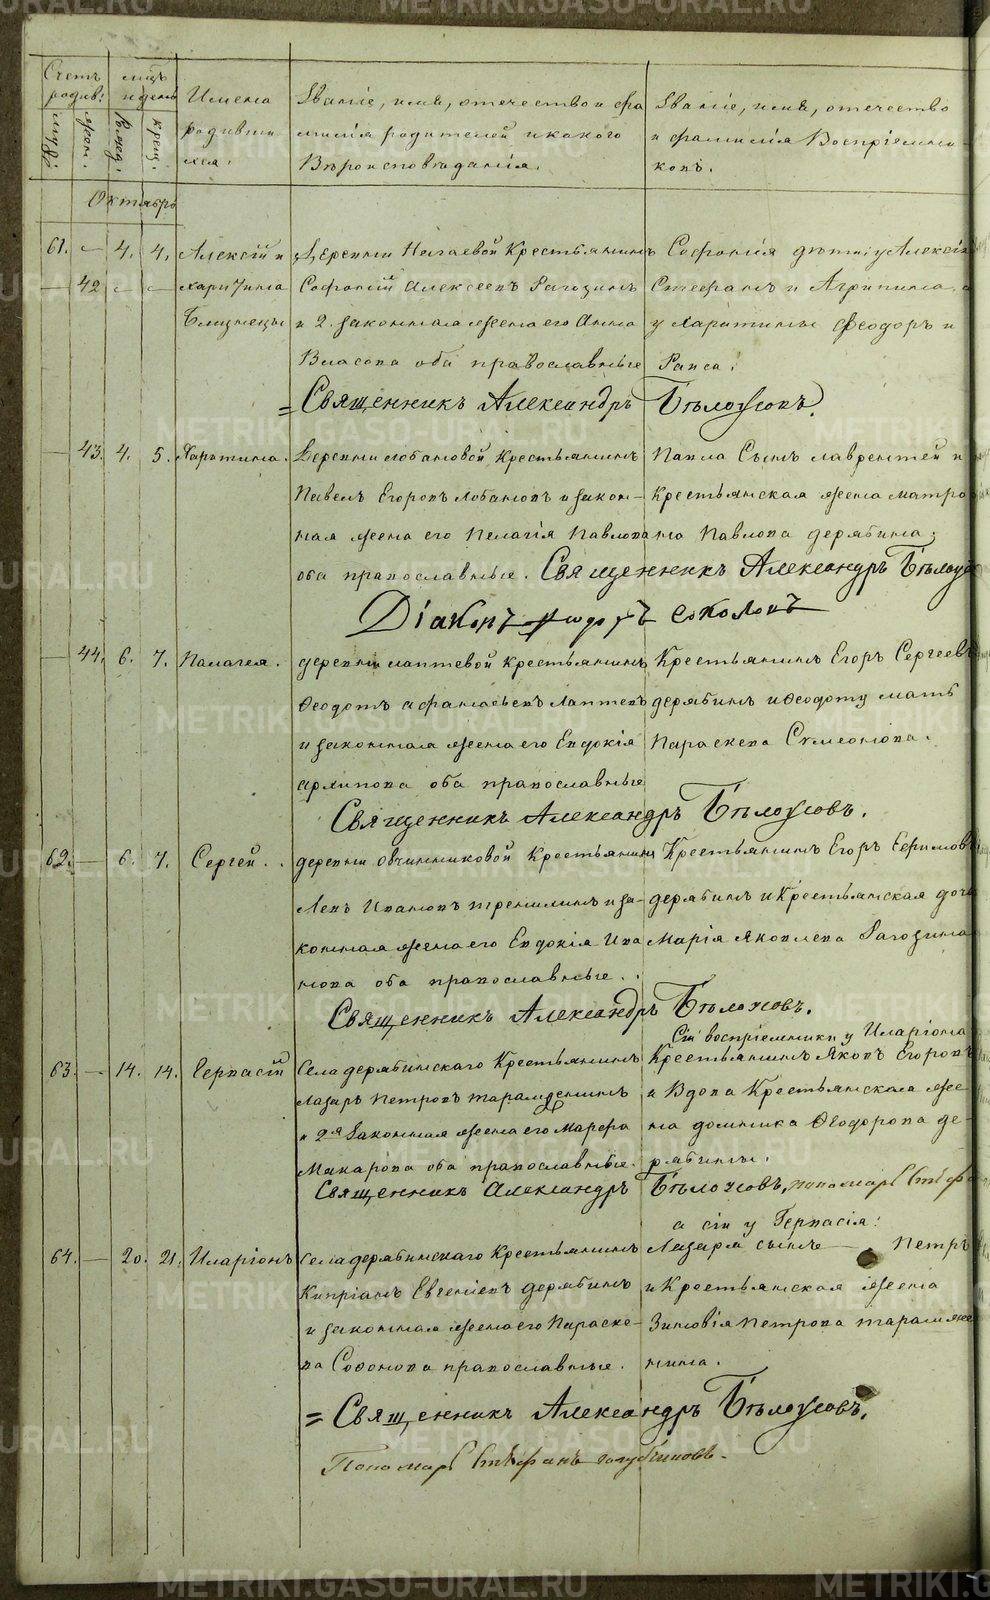 METRIKI.GASO-URAL.RU
Счетъ родив: мцъ и день Имена родивших ся. Званіе, имя, отечество и фамилія родителей и какого Вѣроисповѣданія. Званіе, имя, отечество и фамилія Воспріемниковъ.
муж: жен. рожд. крещ.
Октябрь
61. — 4. 4. Алексій и Деревни Нагаевой Крестьянинъ Софонія дѣти; у Алексія
— 42 — — Харитина Софоній Алексеевъ Рагозинъ Стефанъ и Агрипина, а
Близнецы и 2. законная жена его Анна у Харитины Феодоръ и
Власова оба православные Раиса.
= Священникъ Александръ Бѣлоусовъ.
— 43. 4. 5. Харитина. Деревни Лобановой Крестьянинъ Павла Сынъ Лаврентей и
Павелъ Егоровъ Лобановъ и закон- Крестьянская жена Матро
ная жена его Пелагія Павлова на Павлова Дерябина;
оба православные. Священникъ Александръ Бѣлоусо
Діаконъ Федоръ Соколовъ
— 44. 6. 7. Палагея. деревни Лаптевой Крестьянинъ Крестьянинъ Егоръ Сергеевъ
Феодотъ Афанасьевъ Лаптевъ Дерябинъ и Феодоту мать
и законная жена его Евдокія Параскева Симеонова.
Архипова оба православные
Священникъ Александръ Бѣлоусовъ.
62. — 6. 7. Сергей. деревни Овчинниковой Крестьянинъ Крестьянинъ Егоръ Ефимовъ
Левъ Ивановъ Трениилинъ и за- Дерябинъ и Крестьянская дочь
конная жена его Евдокія Ива Марія Яковлева Рагозина
нова оба православные.
Священникъ Александръ Бѣлоусовъ.
Сіи воспріемники у Иларіона
63. — 14. 14. Гервасій Села Дерябинскаго Крестьянинъ Крестьянинъ Яковъ Егоровъ
Лазарь Петровъ и Вдова Крестьянская же
и 2я Законная жена его Марфа на Домника Феодорова Де-
Макарова оба православные. рябины.
Священникъ Александръ Бѣлоусовъ, пономарь Стефа
а сіи у Гервасія:
64. — 20. 21. Иларіонъ Села Дерябинскаго Крестьянинъ Лазаря сынъ — Петръ
Кипріанъ Евгеніевъ Дерябинъ и Крестьянская жена
и законная жена его Параске- Зиновія Петрова
ва Софонова православные. нина.
= Священникъ Александръ Бѣлоусовъ.
Пономарь Стефанъ Голубчиковъ.